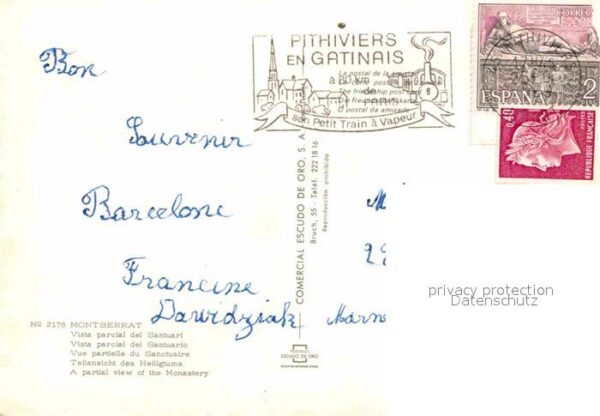 PITHIVIERS
EN GATINAIS
à 80 km
de
son Petit Train à Vapeur
La postal de la
The friendship post card
O postal da amizade
CORREOS
ESPAÑA 2
0,40
REPUBLIQUE FRANÇAISE
POSTES
Bon
Souvenir
Barcelone
Francine
Dawidziak Marne
COMERCIAL ESCUDO DE ORO, S. A.
Bruch, 55 - Teléf. 222 18 16
Reproducción prohibida
privacy protection
Datenschutz
Nº 2176 MONTSERRAT
Vista parcial del Santuari
Vista parcial del Santuario
Vue partielle du Sanctuaire
Teilansicht des Heiligtums
A partial view of the Monastery
POSTALES
ESCUDO DE ORO